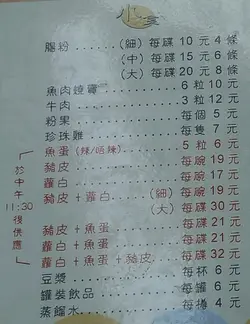 小食
腸粉 (細) 每碟 10 元 4 條
(中) 每碟 15 元 6 條
(大) 每碟 20 元 8 條
魚肉燒賣 6 粒 10 元
牛肉 3 粒 12 元
粉果 每個 5 元
珍珠雞 每隻 7 元
魚蛋 (辣/唔辣) 5 粒 6 元
豬皮 每碗 19 元
蘿白 每碗 17 元
豬皮 + 蘿白 (細) 每碗 19 元
(大) 每碟 30 元
豬皮 + 魚蛋 每碟 21 元
蘿白 + 魚蛋 每碟 21 元
蘿白 + 魚蛋 + 豬皮 每碟 32 元
豆漿 每杯 6 元
罐裝飲品 每罐 6 元
蒸餾水 每樽 4 元
於中午
11:30
後供應